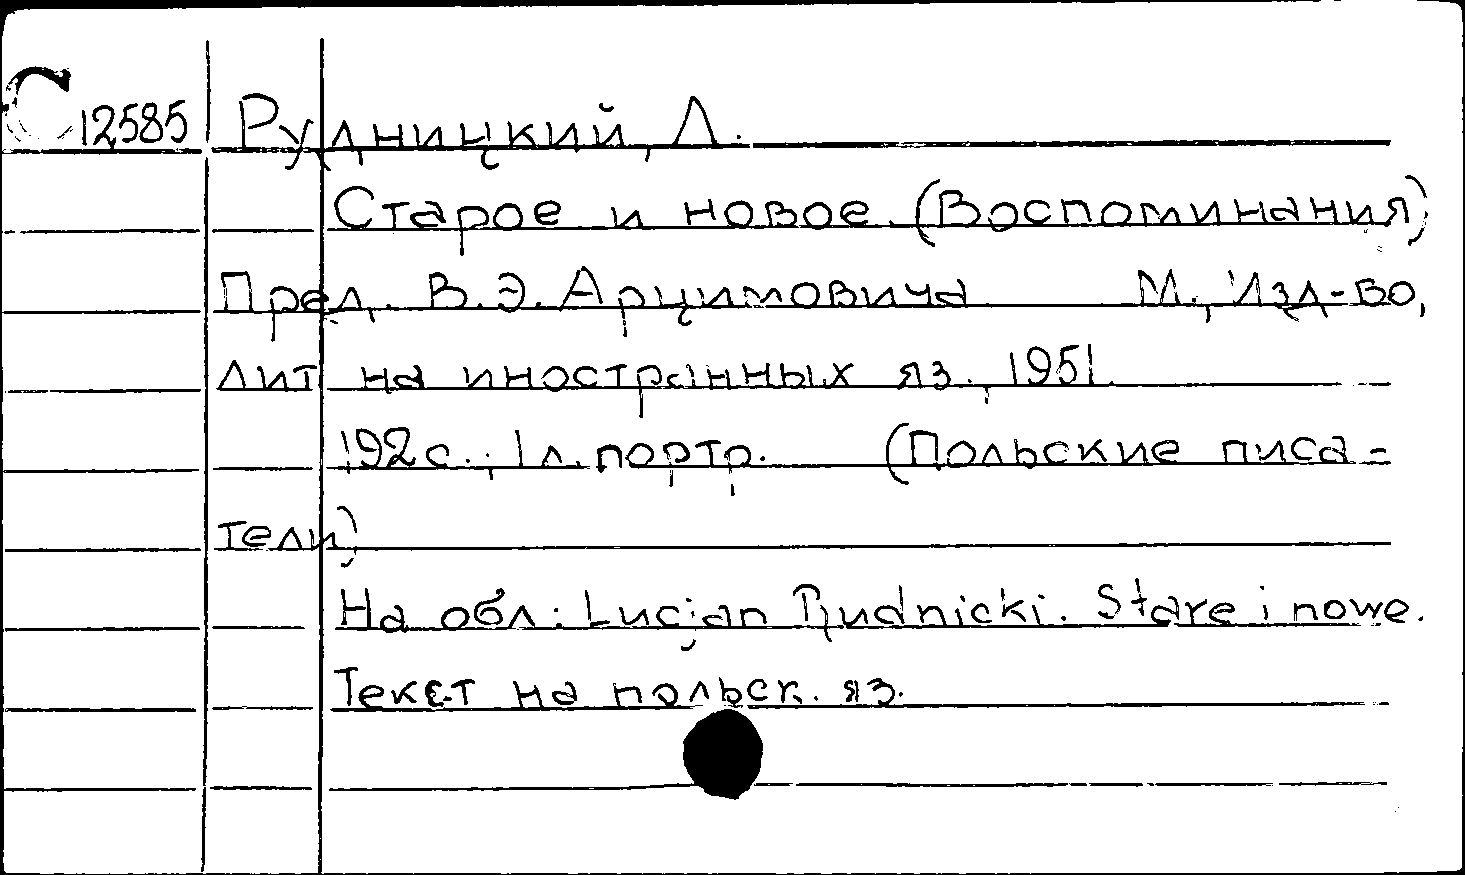 С 12585 Рудницкий, Л.
Старое и новое. (Воспоминания)
Пред. В.Э. Арцимовича М., Изд-во,
лит на иностранных яз., 1951.
192 с.; 1 л. портр. (Польские писа-
тели)
На обл.: Lucjan Rudnicki. Stare i nowe.
Текст на польск. яз.